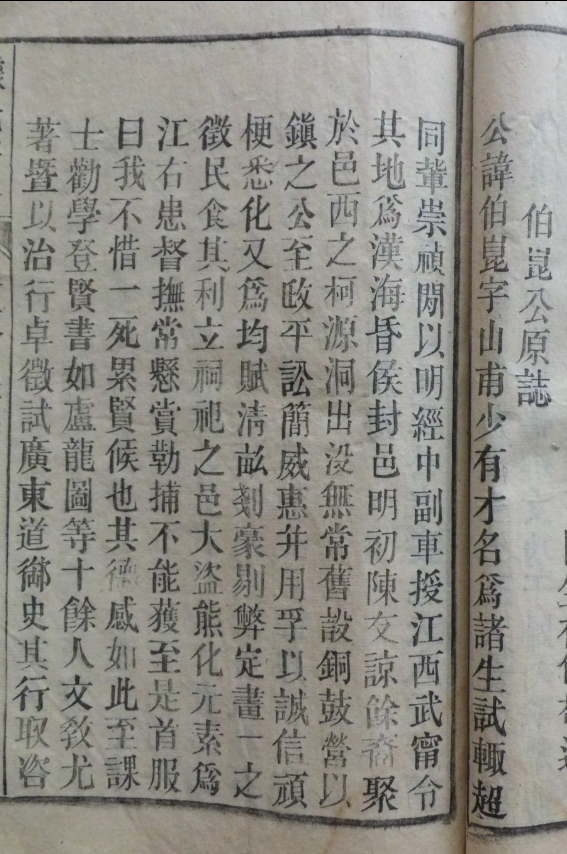 伯崑公原誌
公諱伯崑字山甫少有才名爲諸生試輙超
同輩崇禎間以明經中副車授江西武甯令
其地爲漢海昏侯封邑明初陳友諒餘裔聚
於邑西之柯源洞出没無常舊設銅鼓營以
鎮之公至政平訟簡威惠并用孚以誠信頑
梗悉化又爲均賦淸畝剗豪剔弊定畫一之
徵民食其利立祠祀之邑大盜熊化元素爲
江右患督撫常懸賞勒捕不能獲至是首服
曰我不惜一死累賢候也其德感如此至課
士勸學登賢書如盧龍圖等十餘人文敎尤
著曁以治行卓徵試廣東道御史其行取咨